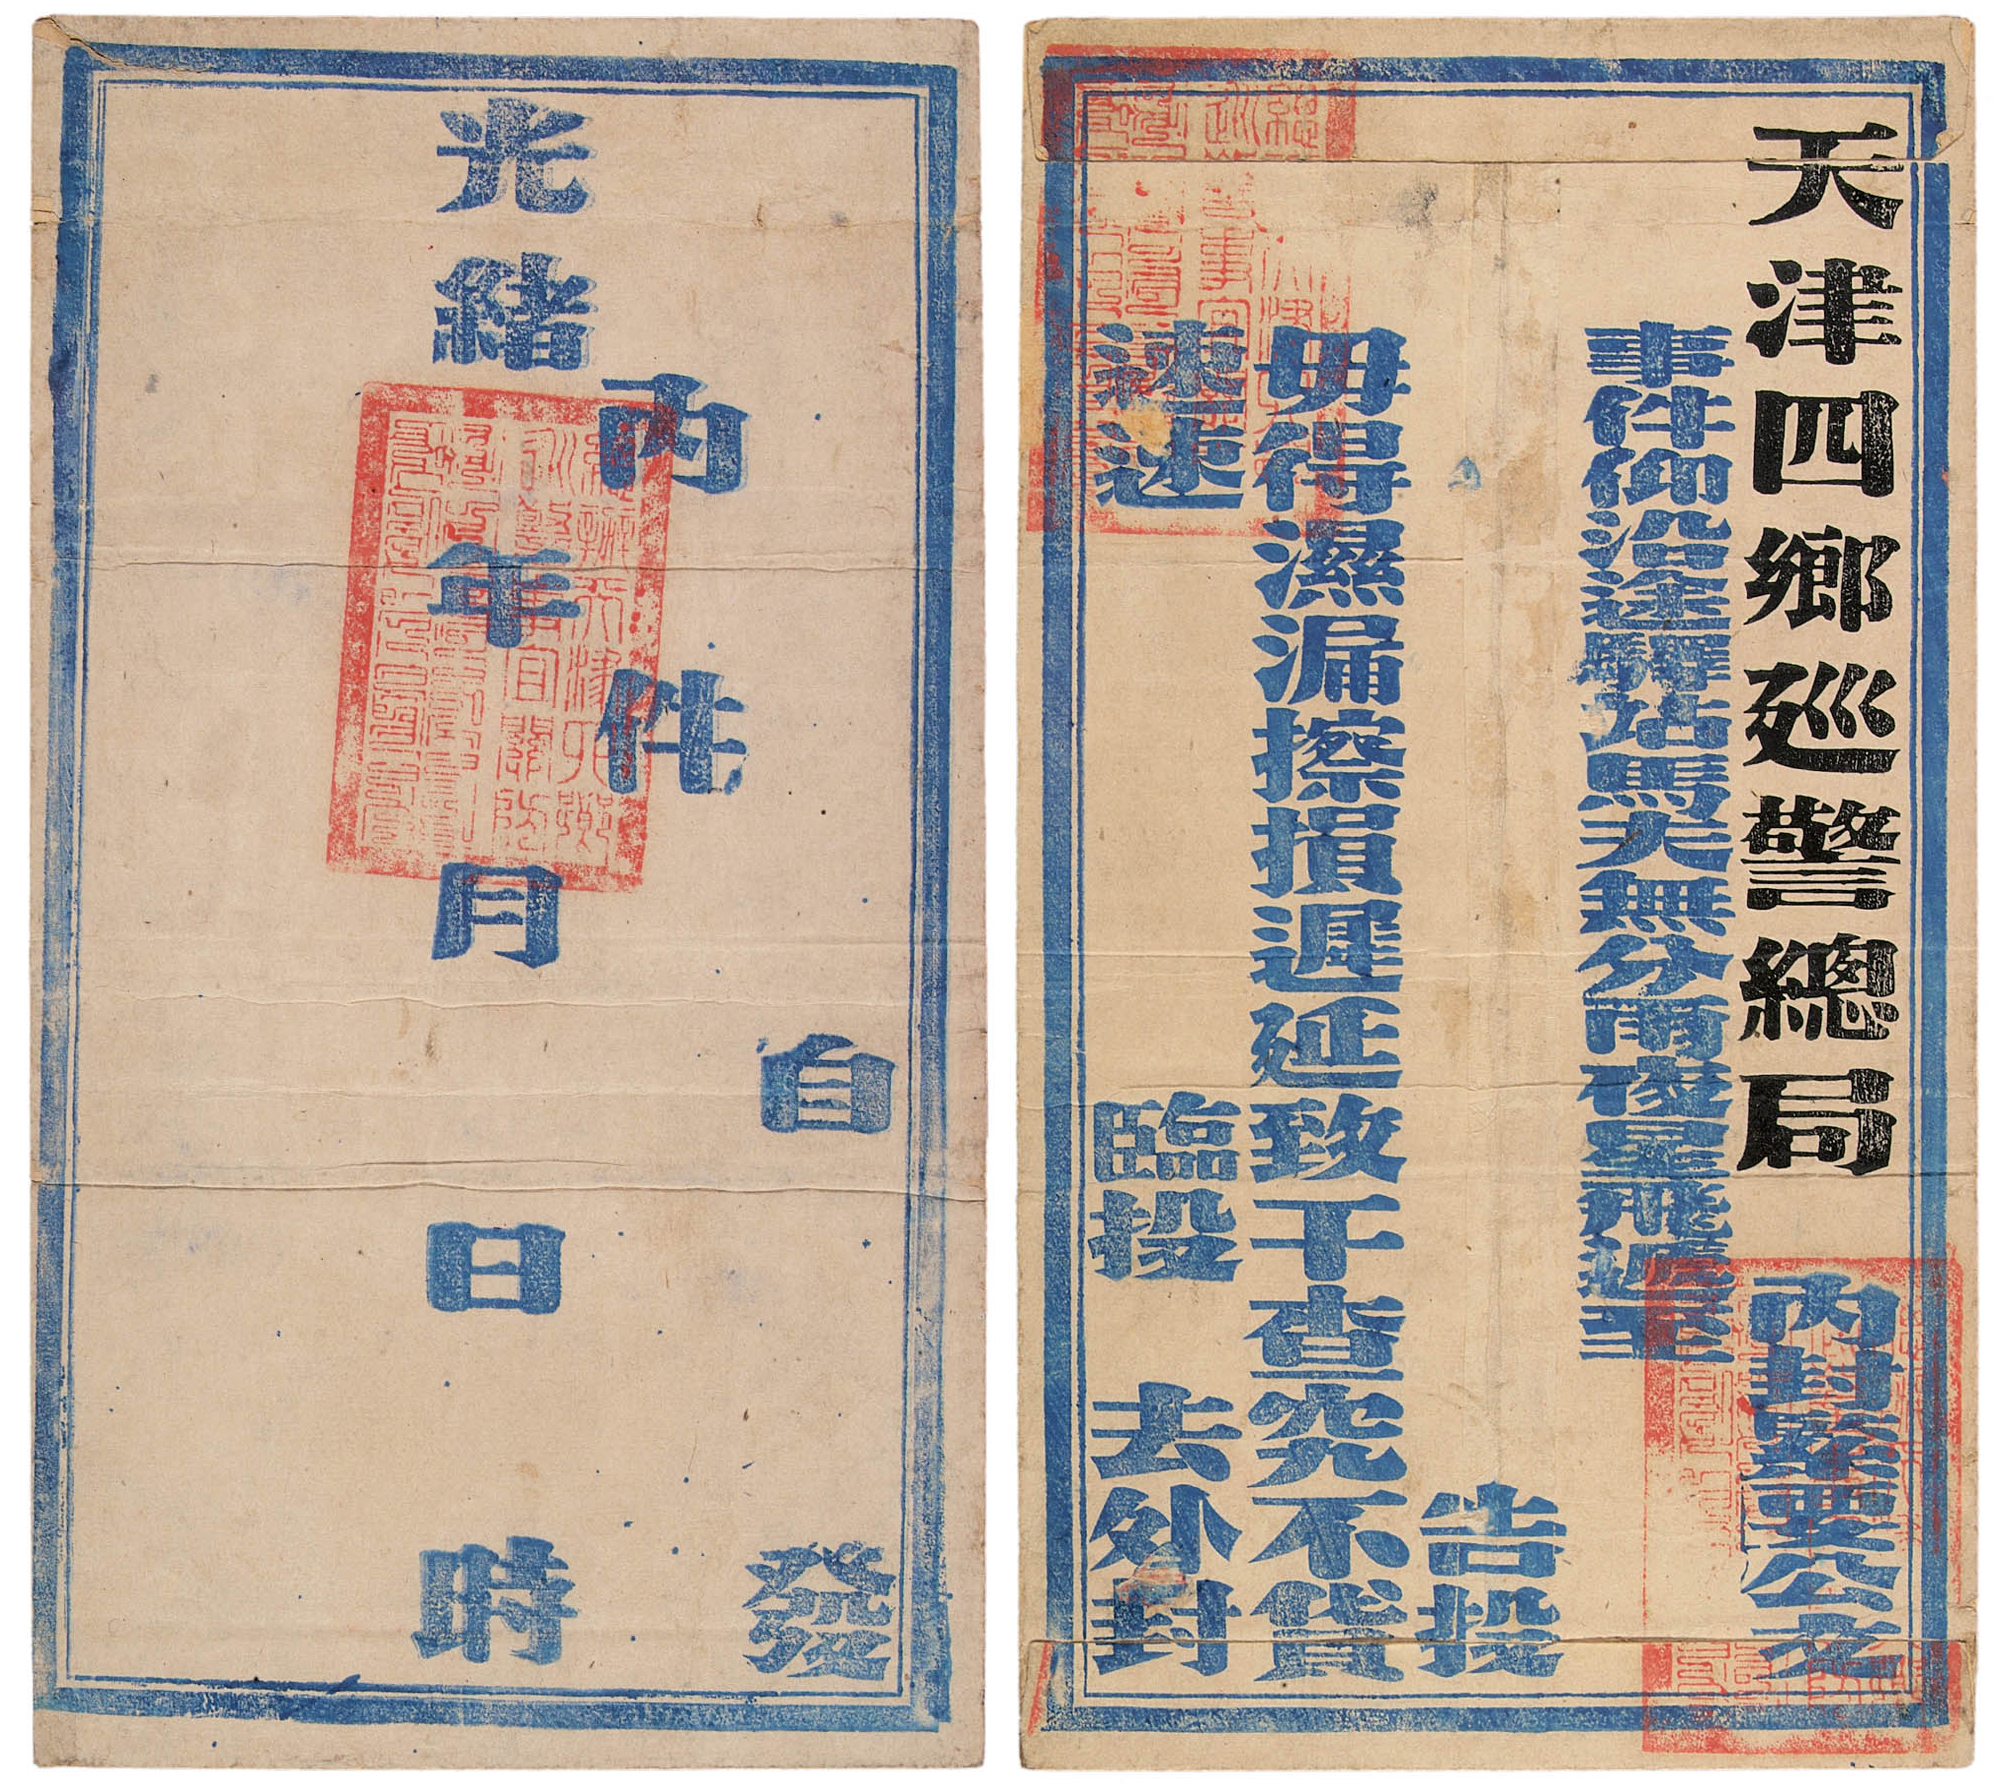 天津四鄉廵警總局
內封緊要公文
事件仰沿途驛站馬夫無分雨夜星飛遞至
告投
毋得濕漏擦損遲延致干查究不貨
速速
臨投
去外封
自
發
內件
光緒
年
月
日
時